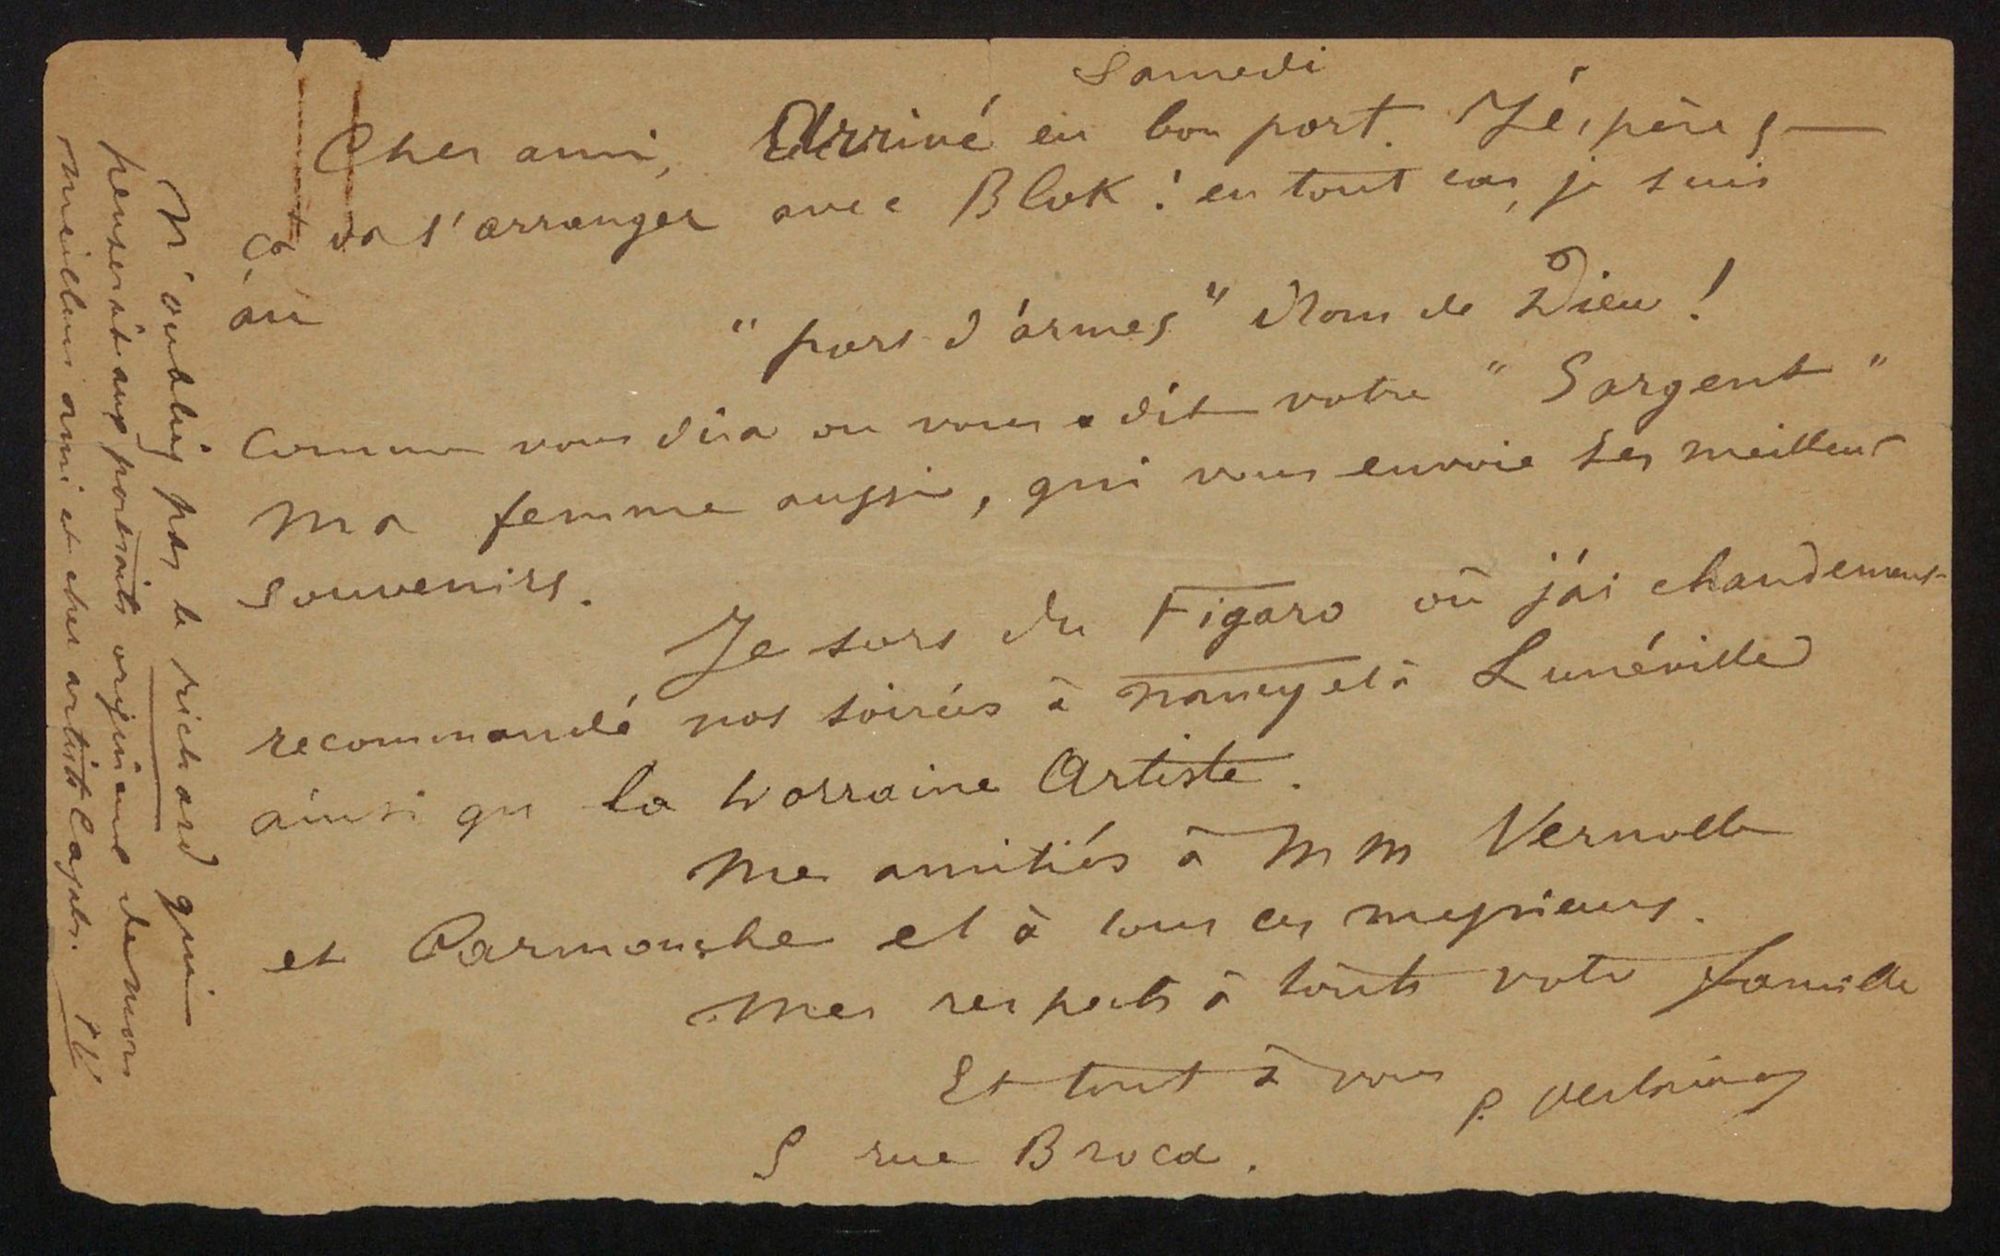 Samedi
Cher ami, Arrivé en bon port. J'éspère ç
va s'arranger avec Blok ! en tout cas, je suis
au
"pors d'armes" Nom de Dieu !
comme vous dira ou vous a dit votre "Sargent"
Ma femme aussi, qui vous envoie ses meilleurs
souvenirs.
Je sors du Figaro où j'ai chaudement
recommandé nos soirées à Nancy et à Lunéville
ainsi qu la Lorraine Artiste.
Mes amitiés à MM Vernolle
et Carmouche et à tous ces messieurs.
Mes respects à toute votre famille
Et tout à vous P. Verlaine
5 rue Broca.
N'oubliez pas le richard qui
penserait aux portraits originaux de mon
meilleur ami et cher artiste Cazals. P.V.